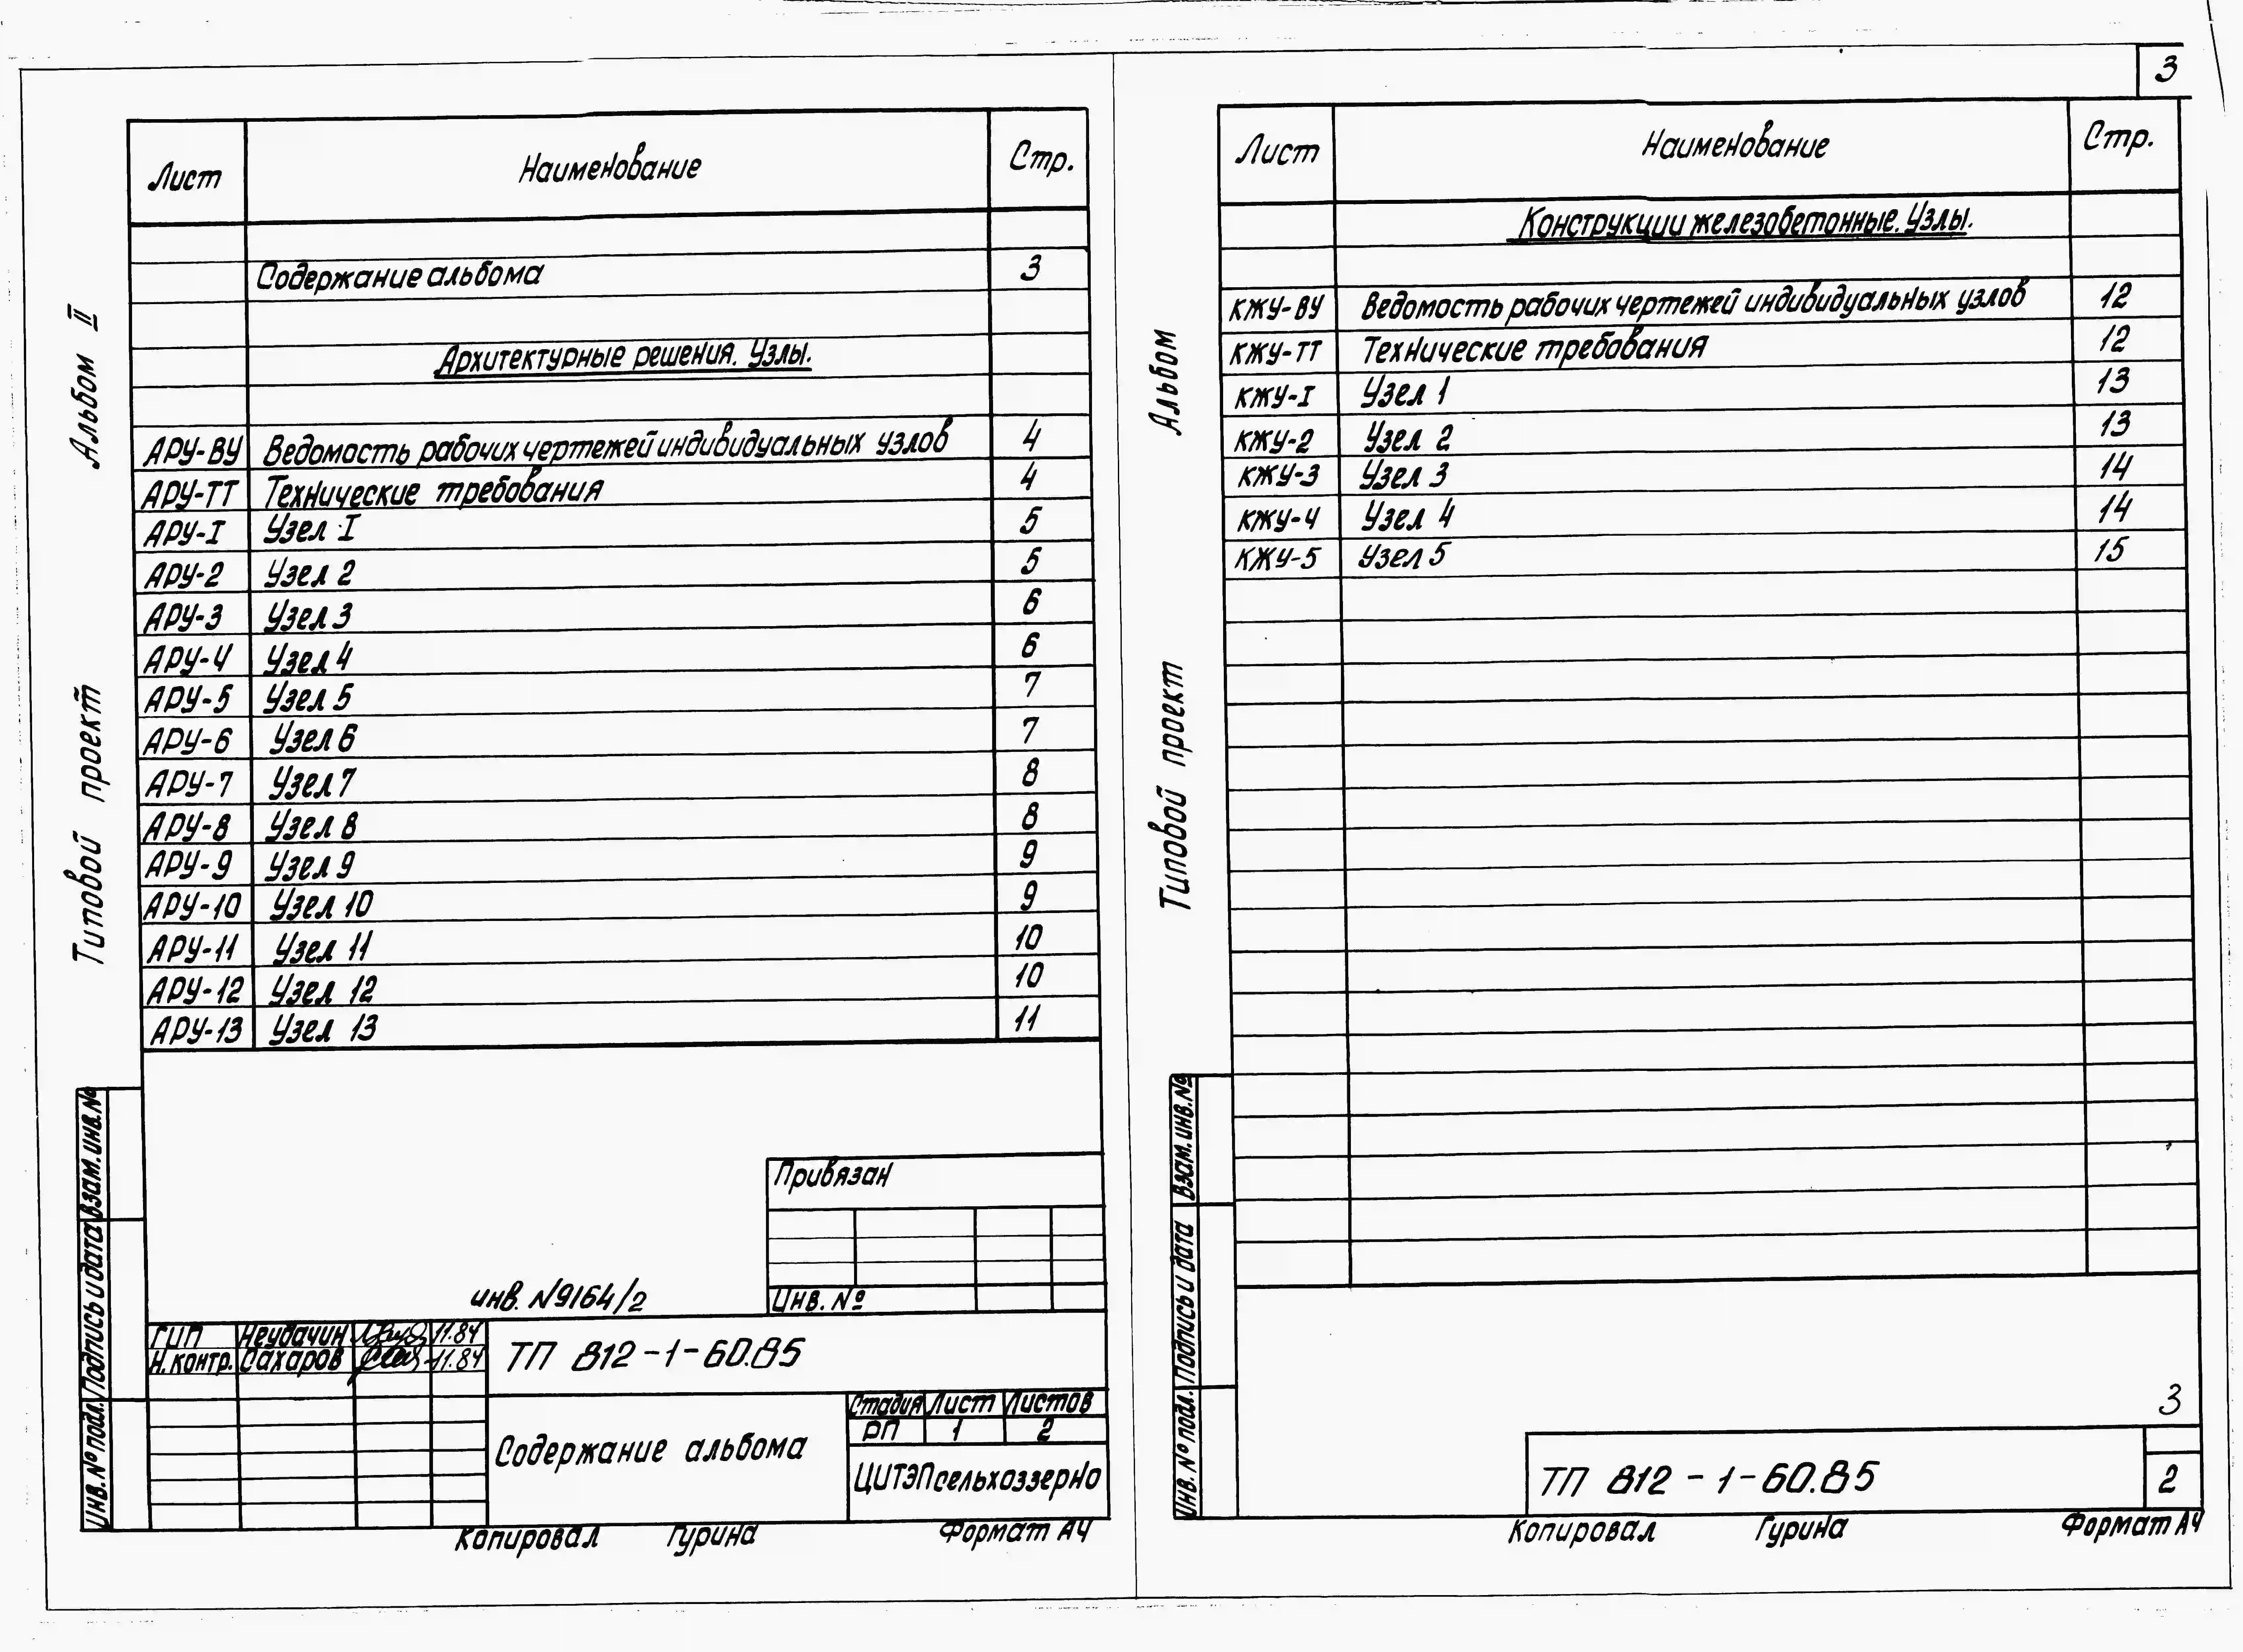 3
Альбом II
Типовой проект
Лист Наименование Стр.
Содержание альбома 3
Архитектурные решения. Узлы.
АРУ-ВУ Ведомость рабочих чертежей индивидуальных узлов 4
АРУ-ТТ Технические требования 4
АРУ-I Узел I 5
АРУ-2 Узел 2 5
АРУ-3 Узел 3 6
АРУ-4 Узел 4 6
АРУ-5 Узел 5 7
АРУ-6 Узел 6 7
АРУ-7 Узел 7 8
АРУ-8 Узел 8 8
АРУ-9 Узел 9 9
АРУ-10 Узел 10 9
АРУ-11 Узел 11 10
АРУ-12 Узел 12 10
АРУ-13 Узел 13 11
Привязан
Инв. №
инв. N9164/2
Взам. инв. №
Подпись и дата
Инв. № подл.
ГИП Неудачин 11.84
Н. контр. Сахаров 11.84
ТП 812-1-60.85
Содержание альбома
Стадия Лист Листов
РП 1 2
ЦИТЭПсельхоззерно
Копировал Гурина Формат А4
Альбом
Типовой проект
Лист Наименование Стр.
Конструкции железобетонные. Узлы.
КЖУ-ВУ Ведомость рабочих чертежей индивидуальных узлов 12
КЖУ-ТТ Технические требования 12
КЖУ-I Узел 1 13
КЖУ-2 Узел 2 13
КЖУ-3 Узел 3 14
КЖУ-4 Узел 4 14
КЖУ-5 Узел 5 15
Взам. инв. №
Подпись и дата
Инв. № подл.
3
ТП 812-1-60.85
2
Копировал Гурина Формат А4